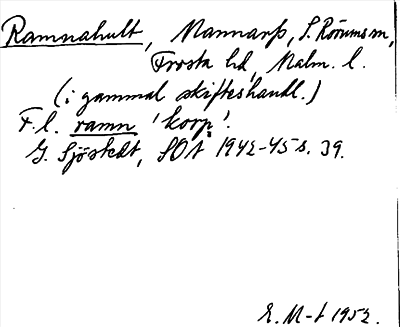 Ramnahult, Mannarp, S. Rörums sn,
Frosta hd, Malm. l.
(i gammal skifteshandl.)
F. l. ramn 'korp'.
G. Sjöstedt, SOÅ 1942-45 s. 39.
E. M-t 1952.